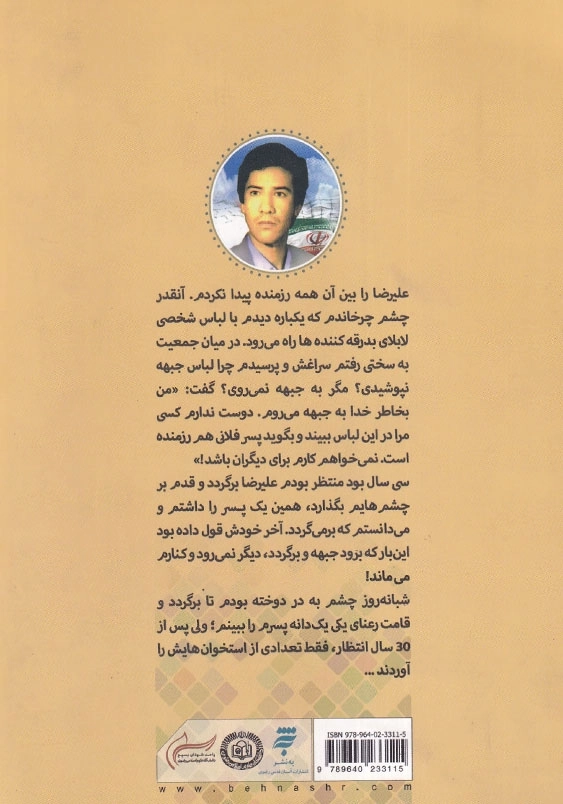 علیرضا را بین آن همه رزمنده پیدا نکردم. آنقدر
چشم چرخاندم که یکباره دیدم با لباس شخصی
لابلای بدرقه کننده ها راه می‌رود. در میان جمعیت
به سختی رفتم سراغش و پرسیدم چرا لباس جبهه
نپوشیدی؟ مگر به جبهه نمی‌روی؟ گفت: «من
بخاطر خدا به جبهه می‌روم. دوست ندارم کسی
مرا در این لباس ببیند و بگوید پسر فلانی هم رزمنده
است. نمی‌خواهم کارم برای دیگران باشد!»
سی سال بود منتظر بودم علیرضا برگردد و قدم بر
چشم‌هایم بگذارد، همین یک پسر را داشتم و
می‌دانستم که برمی‌گردد. آخر خودش قول داده بود
این‌بار که برود جبهه و برگردد، دیگر نمی‌رود و کنارم
می ماند!
شبانه‌روز چشم به در دوخته بودم تا برگردد و
قامت رعنای یکی یک‌دانه پسرم را ببینم؛ ولی پس از
30 سال انتظار، فقط تعدادی از استخوان‌هایش را
آوردند ...
به نشر
انتشارات آستان قدس رضوی
ISBN 978-964-02-3311-5
9 789640 233115
www.behnashr.com